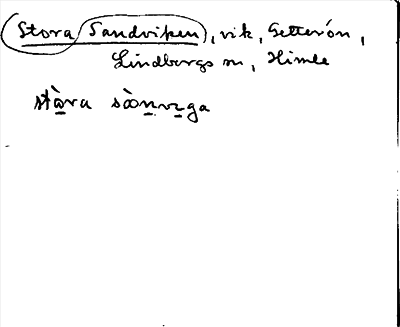 Stora Sandviken, vik, Getterön,
Lindbergs sn, Himle
stàra sànvega